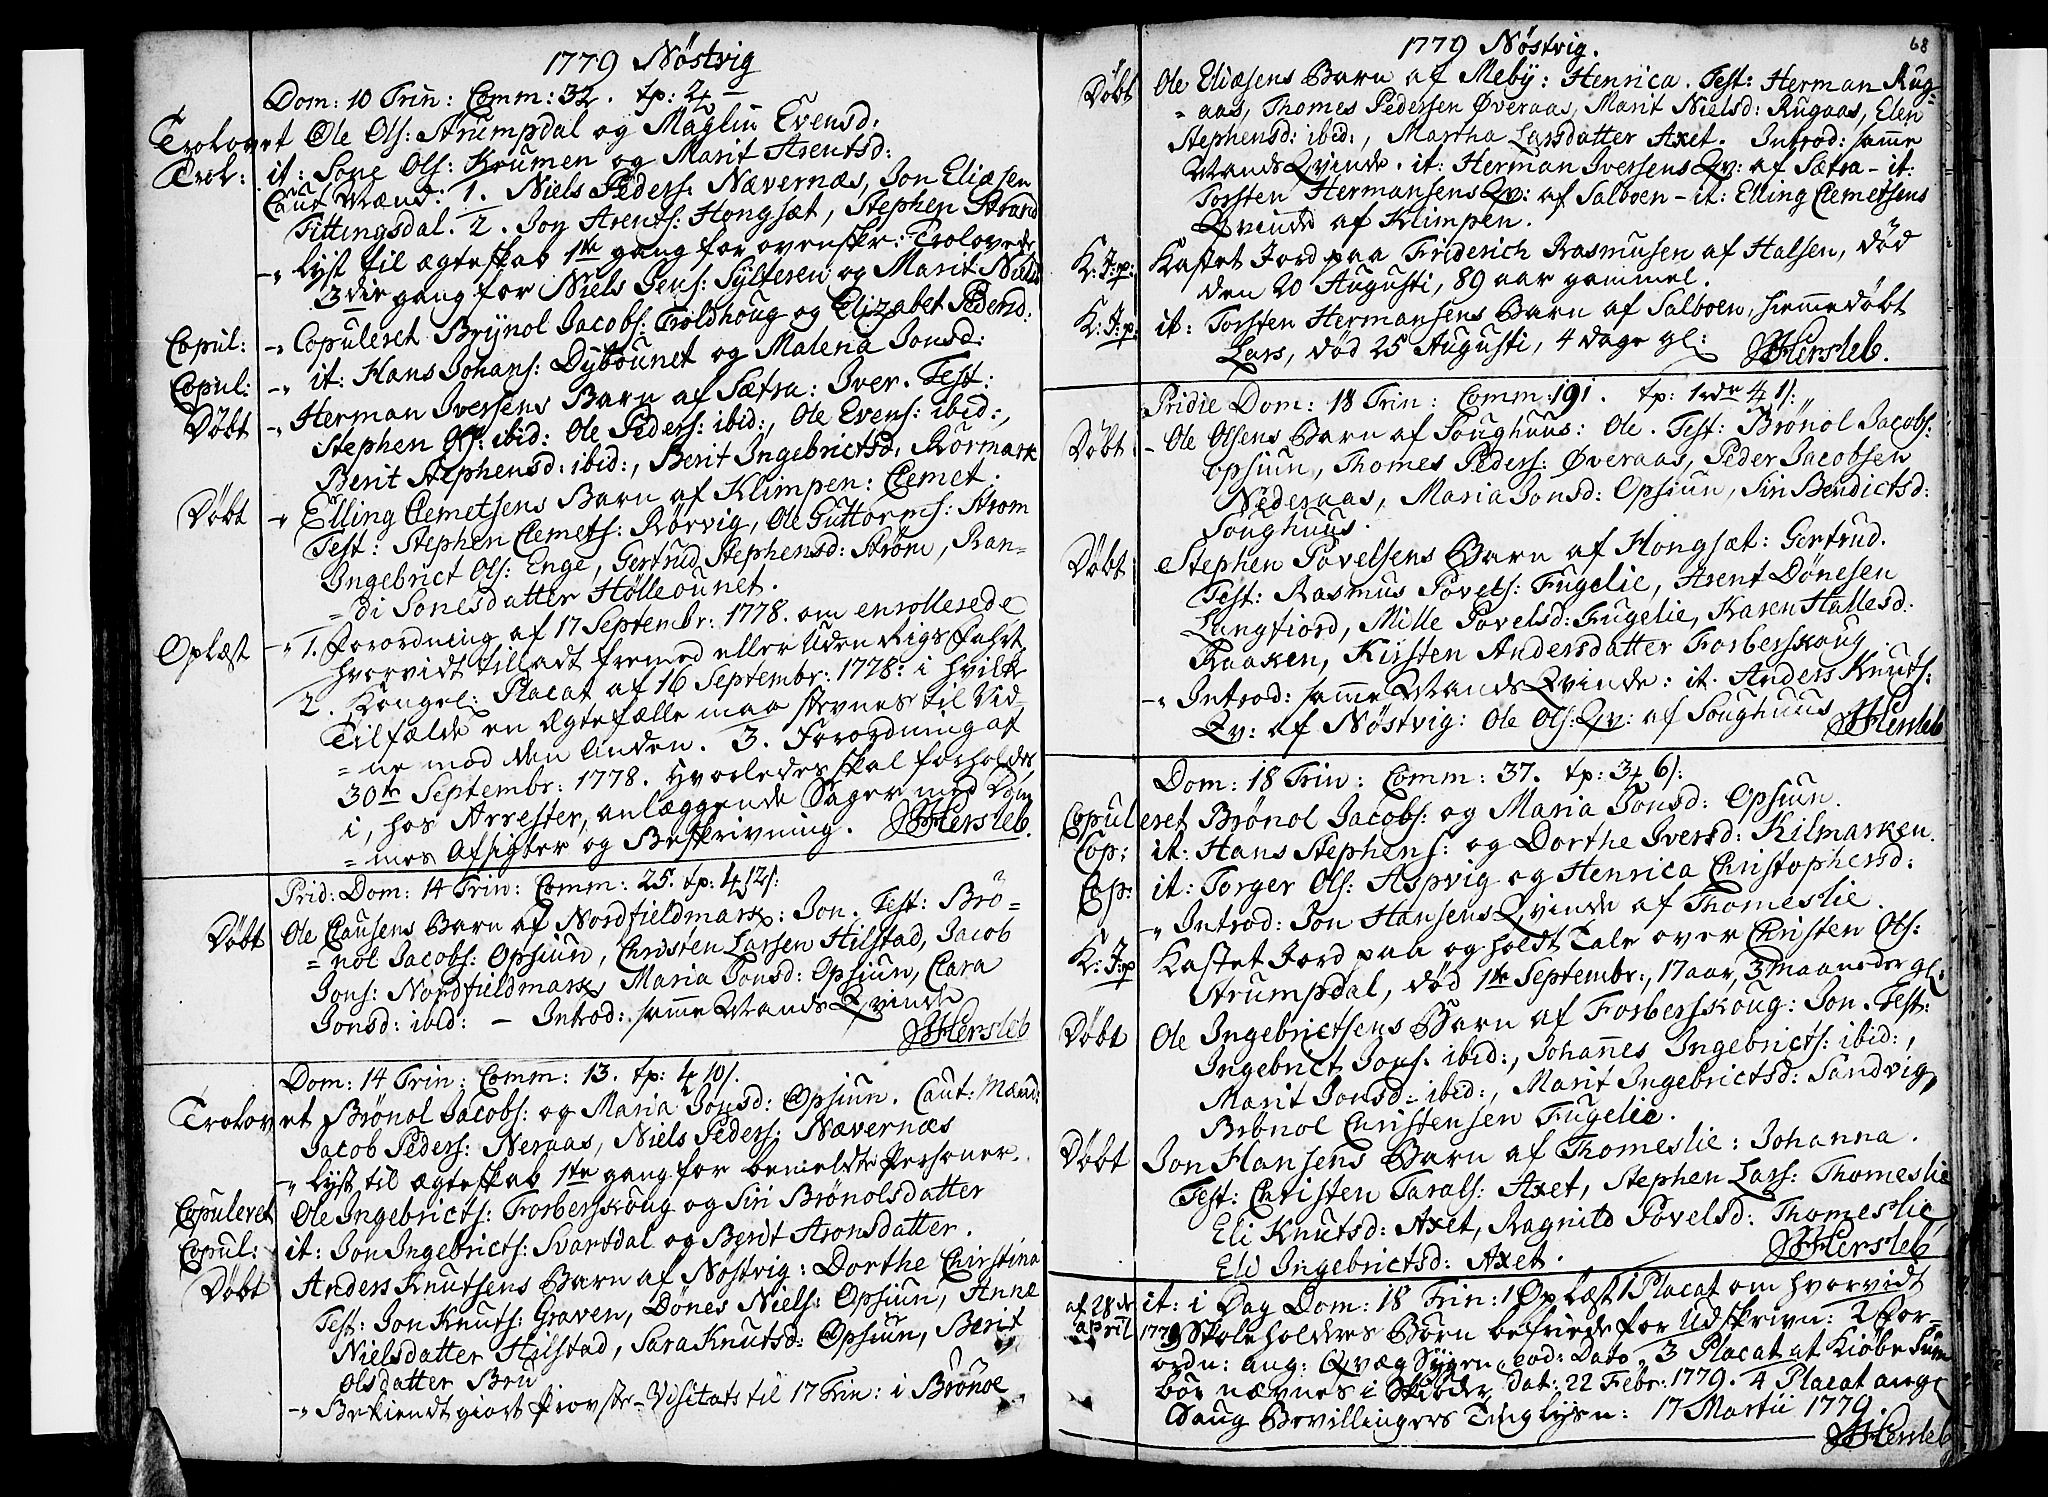 1779 Nöstvig
Dom: 10 Trin: Comm: 32. tp: 2
Trolovet Ole Ols: Strumpdal og Maglin Evensd:
Trol: it: Sone Ols: Krumen og Marit Arentsd:
Caut Mænd: 1. Niels Peders: Nævernæs, Jon Eliæsen
Fittingsdal. 2. Jon Arents: Hongsæt, Stephen Strand
- Lyst til ægteskab 1te gang for ovenskr: Trolovede
3die gang for Niels Jens: Sylteren og Marit Nielsd
Copul: - Copuleret Brynol Jacobs: Troldhoug og Elizabet Pedersd:
Copul: - it: Hans Johans: Dybounet og Malena Jonsd:
Döbt - Herman Iversens Barn af Sætra: Iver. Test:
Stephen Ols: ibid: Ole Peders: ibid:, Ole Evens: ibid:,
Berit Stephensd: ibid:, Berit Ingebrictsd. Rörmark
Döbt - Elling Clemetsens Barn af Klimpen: Clemet.
Test: Stephen Clemets: Rörvig, Ole Guttorms: Strom
Ingebrict Ols: Enge, Gertrud Stephensd: Ström, Ran-
=di Sonesdatter Hölleounet.
Oplæst - 1. Forordning af 17 Septembr: 1778. om enrollerede
hvorvidt tilladt fremed eller Uden Rigs Fahrt
2. Kongel: Placat af 16 Septembr: 1778: i hvilke
Tilfælde en Ægtefælle maa stevnes til Vid-
=ne mod den Anden. 3. Forordning af
30te Septembr: 1778. Hvorledes skal forholdes
i, hos Arrester, anlæggende Sager med Dom
=mes Afsigter og Beskrivning. Hersleb.
Prid: Dom: 14 Trin: Comm: 25. tp: 4 12s:
Döbt Ole Clausens Barn af Nordfieldmark: Jon. Test: Brö-
=nol Jacobs: Opsiun, Christen Larsen Hilstad, Jacob
Jons: Nordfieldmark, Maria Jonsd: Opsiun, Clara
Jonsd: ibid: - Introd: samme Mands Qvinde
Hersleb
Dom: 14 Trin: Comm: 13. tp: 4 10s.
Trolovet Brönol Jacobs: og Maria Jonsd: Opsiun. Caut: Mænd:
Jacob Peders: Neraas, Niels Peders: Nævernæs
- Lyst til ægteskab 1te gang for bemeldte Personer.
Copuleret Ole Ingebricts: Forberskoug og Siri Brönolsdatter
Copul: it: Jon Ingebricts: Svartdal og Berit Aronsdatter.
Döbt Anders Knutsens Barn af Nöstvig: Dorthe Christina
Test: Jon Knuts: Graven, Dönes Niels: Opsiun, Anne
Nielsdatter Hilstad, Sara Knutsd: Opsiun, Berit
Olsdatter Bru
- Bekiendt giort Provste-Visitats til 17 Trin: i Brönöe
1779 Nöstvig.
68
Döbt Ole Eliæsens Barn af Meby: Henrica. Test: Herman Rug-
=aas, Thomes Pedersen Øveraas, Marit Nielsd: Rugaas, Elen
Stephensd: ibid:, Martha Larsdatter Axet. Introd: samme
Mands Qvinde. it: Herman Iversens Qv: af Sætra - it:
Torsten Hermansens Qv: af Salboen - it: Elling Clemetsens
Qvinde af Klimpen.
K: J: p: Kastet Jord paa Friderich Rasmusen af Halsen, död
den 20 Augusti, 89 aar gammel.
K: J: p: it: Torsten Hermansens Barn af Salboen, hiemmedöbt
Lars, död 25 Augusti, 4 dage gl: Hersleb.
Pridie Dom: 18 Trin: Comm: 191. tp: 1rdr 4 1s:
Döbt - Ole Olsens Barn af Soughuus: Ole. Test: Brönol Jacobs:
Opsiun, Thomes Peders: Øveraas, Peder Jacobsen
Nederaas, Maria Jonsd: Opsiun, Siri Bendictsd:
Soughuus.
Döbt Stephen Povelsens Barn af Hongsæt: Gertrud.
Test: Rasmus Povels: Fugelie, Arent Dönesen
Langfiord, Mille Povelsd: Fugelie, Karen Hallesd:
Kaaken, Kirsten Andersdatter Forberskoug
- Introd: samme Mands Qvinde: it. Anders Knuts:
Qv: af Nöstvig: Ole Ols: Qv: af Soughuus Hersleb
Dom: 18 Trin: Comm: 37. tp: 3 6s:
Copuleret Brönol Jacobs: og Maria Jonsd: Opsiun.
Cop: it: Hans Stephens: og Dorthe Iversd: Kilmarken.
Cop: it: Torger Ols: Aspvig og Henrica Christophersd:
- Introd: Jon Hansens Qvinde af Thomeslie.
K: J: p Kastet Jord paa og holdt Tale over Christen Ols:
Strumpdal, död 1te Septembr:, 17 aar, 3 maaneder gl:
Döbt Ole Ingebrictsens Barn af Forberskoug: Jon. Test:
Ingebrict Jons: ibid:, Johañes Ingebricts: ibid:,
Marit Jonsd: ibid:, Marit Ingebrictsd: Sandvig,
Brönol Christensen Fugelie.
Döbt Jon Hansens Barn af Thomeslie: Johanna.
Test: Christen Tarals: Axet, Stephen Lars: Thomeslie
Eli Knutsd: Axet, Ragnild Povelsd: Thomeslie
Eli Ingebrictsd: Axet. Hersleb
af 28de april 1779 it: i Dag Dom: 18 Trin: Oplæst 1 Placat om hvorvidt
Skoleholderes Börn befriede for Udskrivn: 2 For-
ordn: ang: Qvæg Sygen, eod: Dato, 3 Placat at Kiöbe Sum
bör nævnes i Skiöder, dat: 22 Febr: 1779. 4 Placat ang:
Bevillingers Tinglysn: 17 Martii 1779.
Hersleb